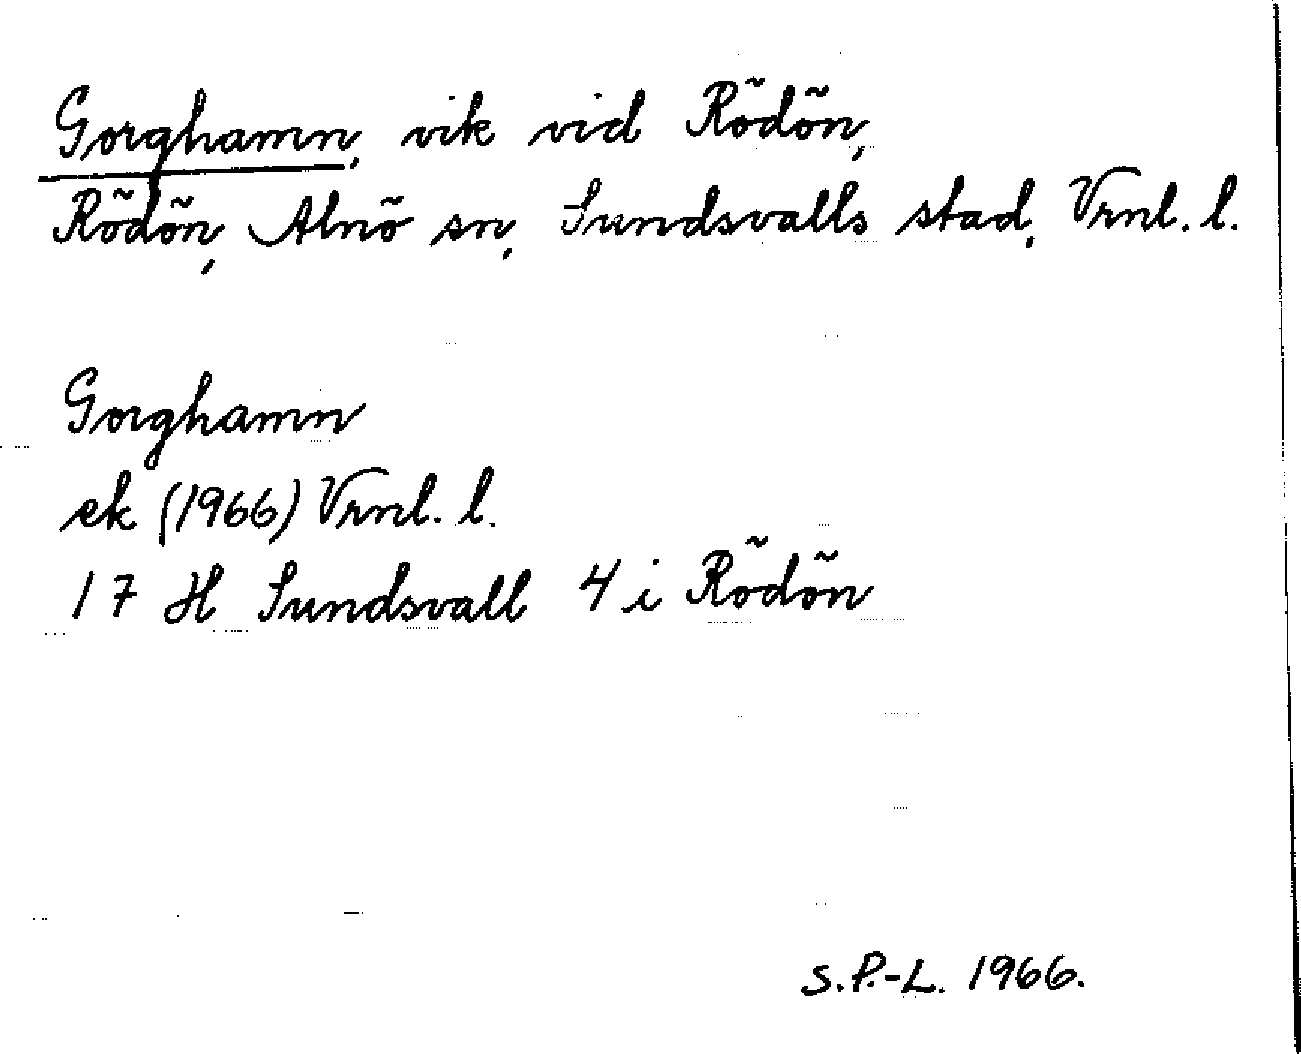 Gorghamn, vik vid Rödön,
Rödön, Alnö sn, Sundsvalls stad, Vrnl. l.
Gorghamn
ek (1966) Vrnl. l.
17 H Sundsvall 4 i Rödön
S.P.-L. 1966.